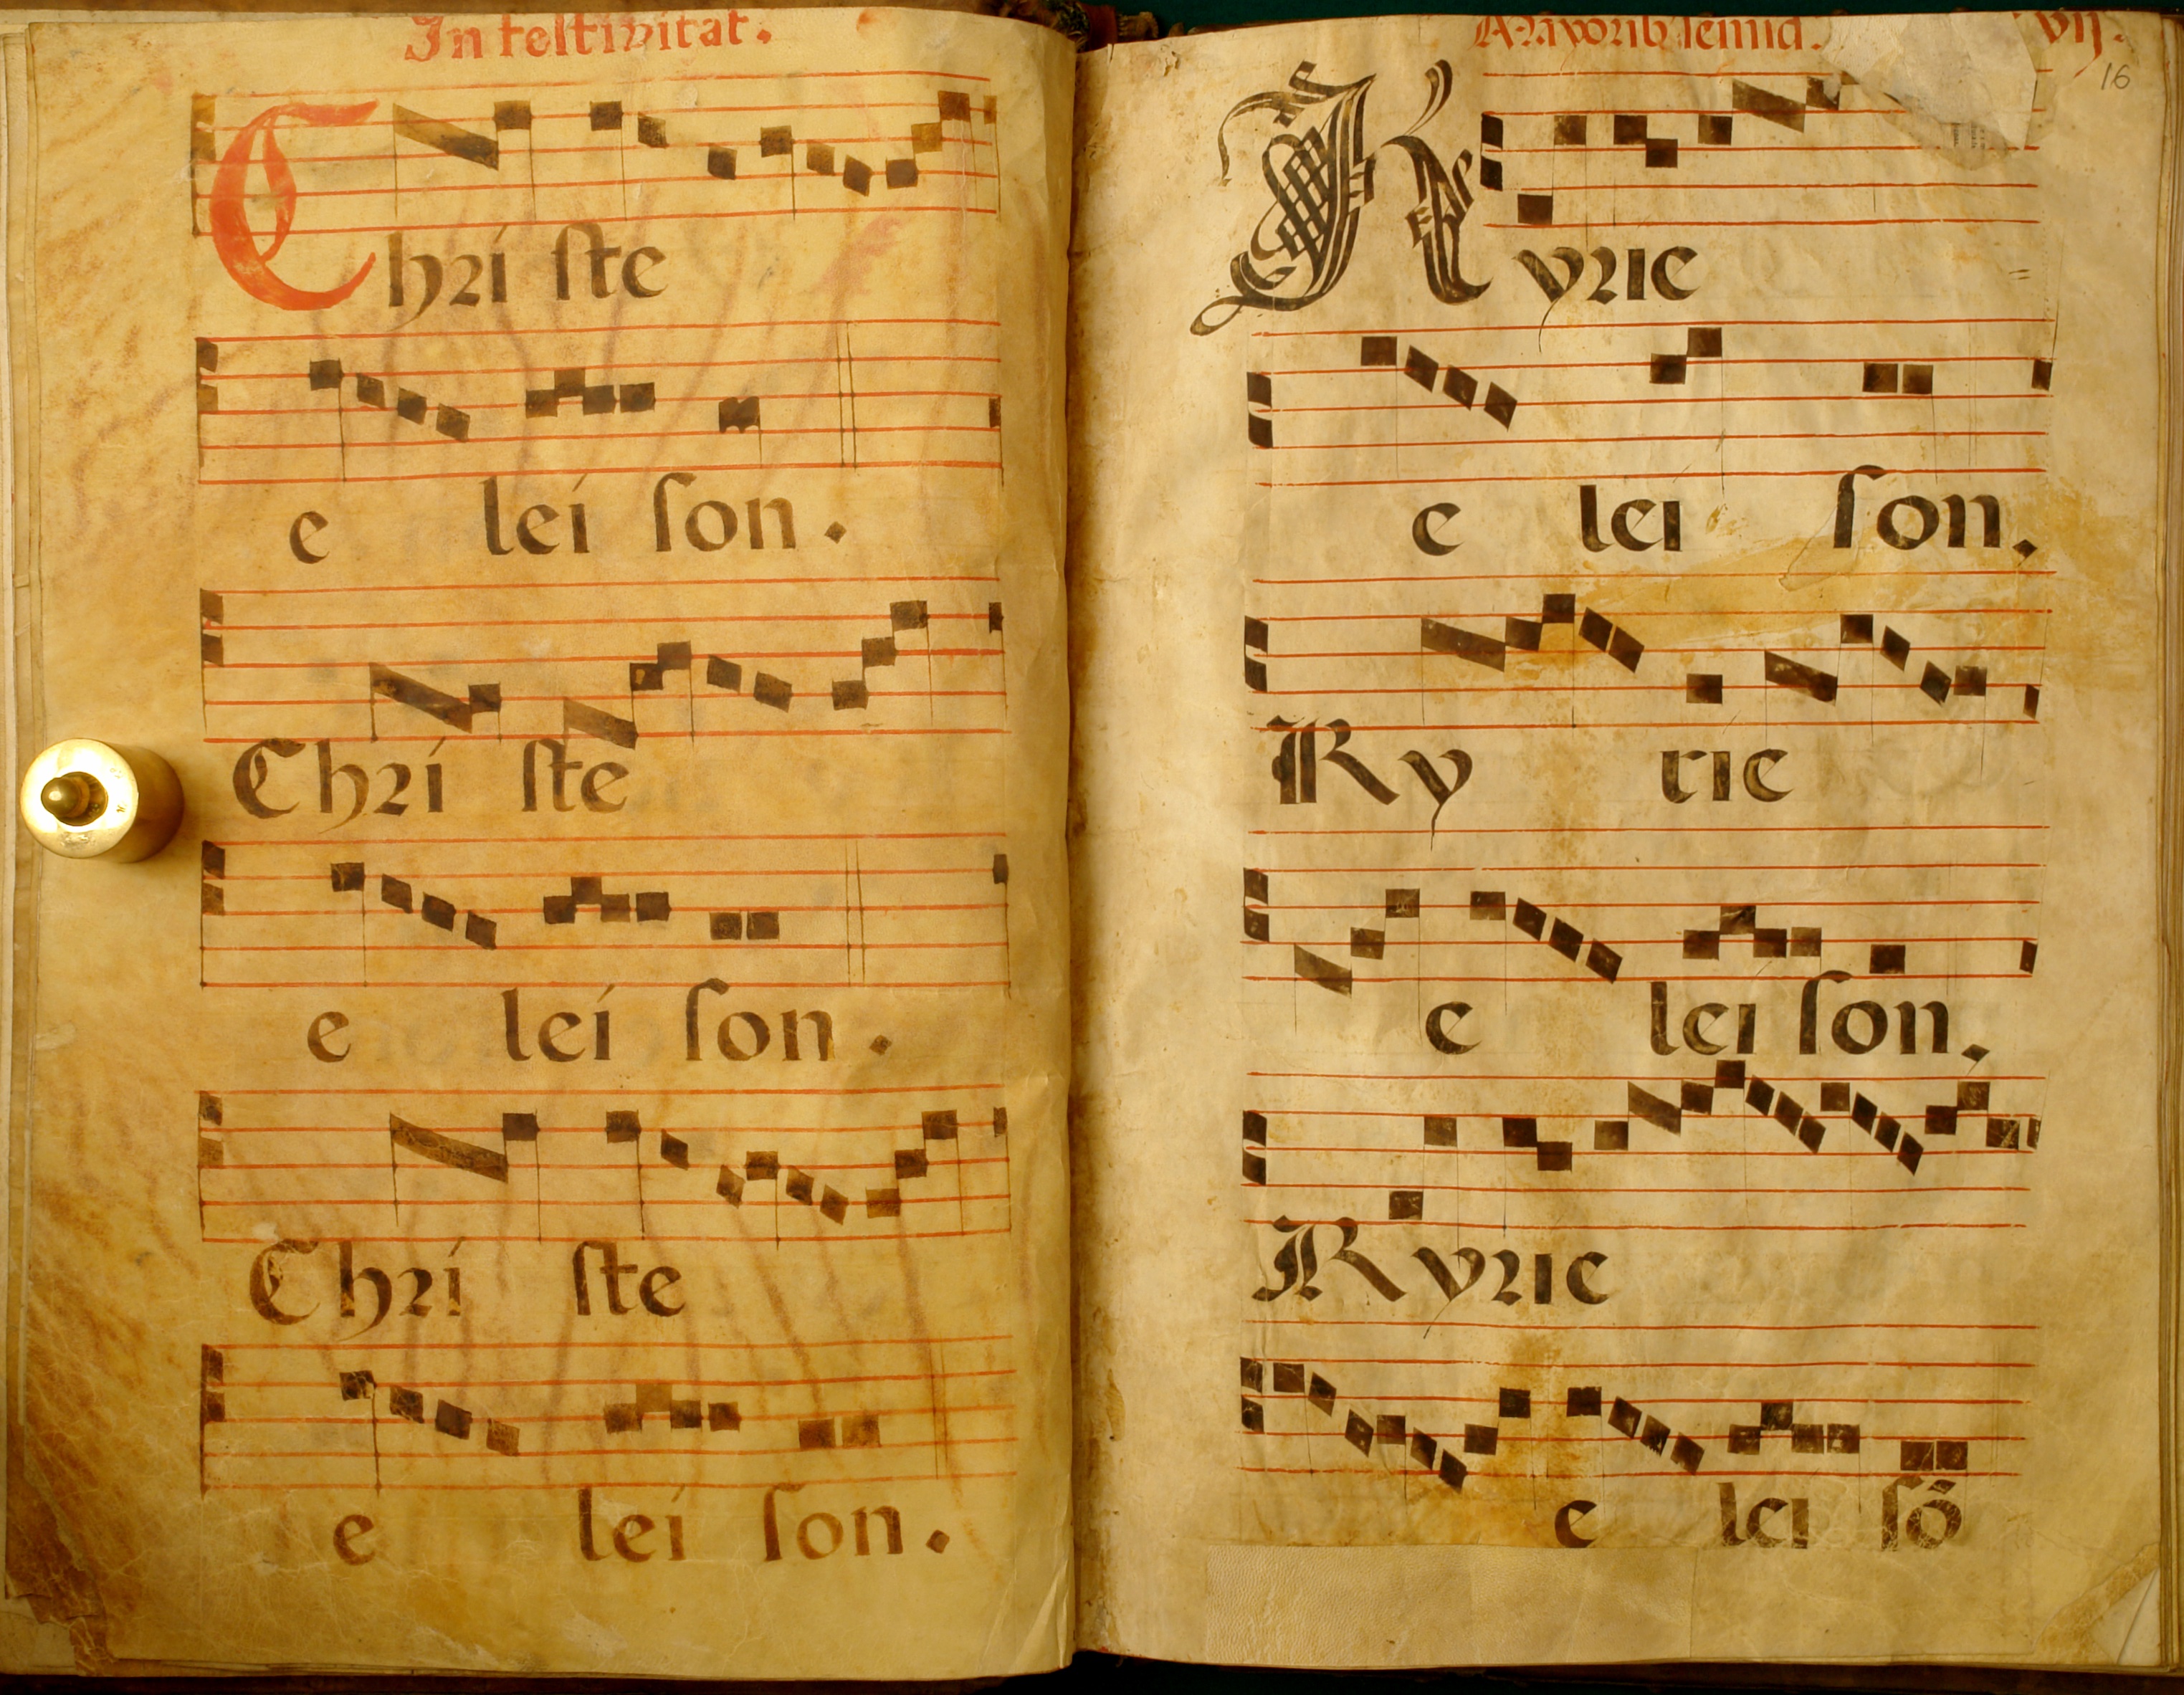 In festivitat.
Chri ste
e lei son.
Chri ste
e lei son.
Chri ste
e lei son.
Maiorib semid. vij.
16
Kyrie
e lei son.
Ky rie
e lei son.
Kyrie
e lei sõ